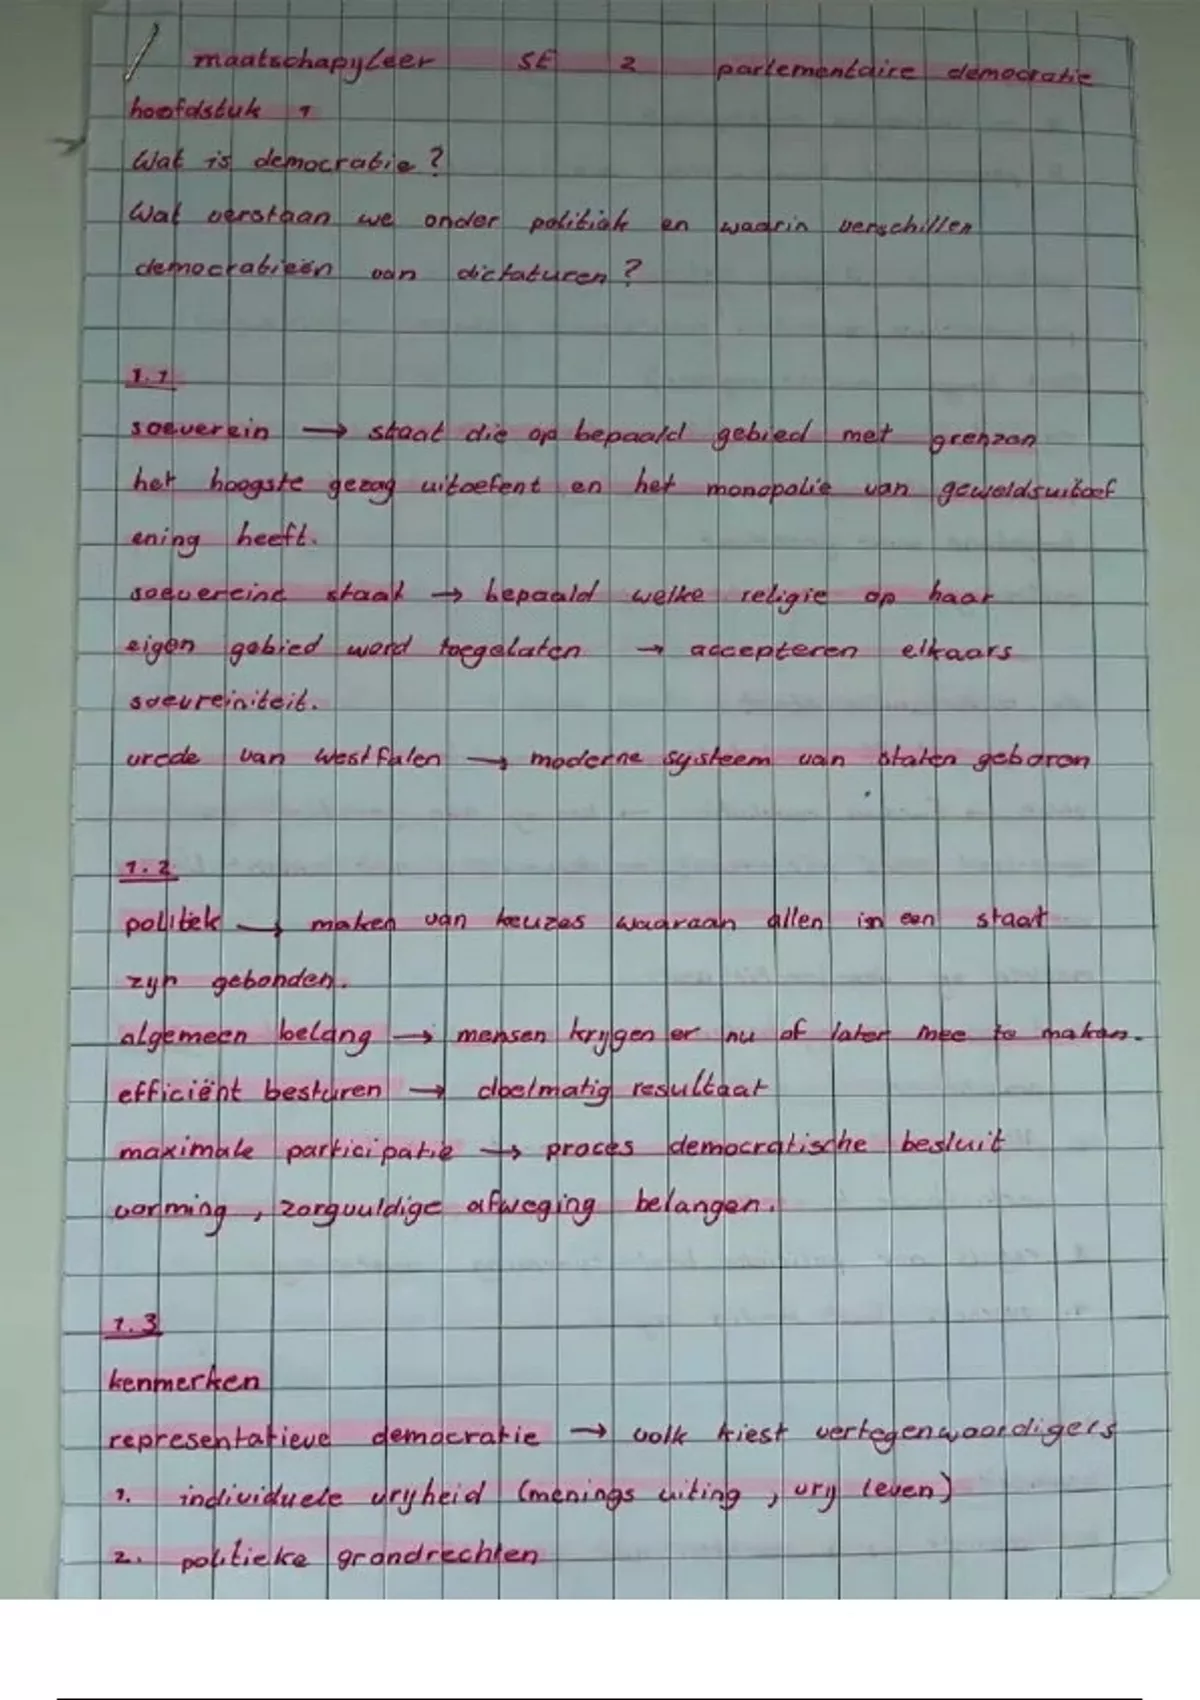 maatschapyleer SE 2 parlementaire democratie
hoofdstuk 1
Wat is democratie?
Wat verstaan we onder politiek en waarin verschillen
democratieën van dictaturen?
1.1
soeverein → staat die op bepaald gebied met grenzen
het hoogste gezag uitoefent en het monopolie van geweldsuitoef
ening heeft.
soevereine staat → bepaald welke religie op haar
eigen gebied word toegelaten → accepteren elkaars
soevreiniteit.
vrede van westfalen → moderne systeem van staten geboren
1.2
politiek → maken van keuzes waaraan allen in een staat
zyn gebonden.
algemeen belang → mensen krygen er nu of later mee te maken.
efficiënt besturen → doelmatig resultaat
maximale participatie → proces democratische besluit
vorming, zorgvuldige afweging belangen.
1.3
kenmerken
representatieve democratie → volk kiest vertegenwoordigers
1. individuele vryheid (menings uiting, vry leven)
2. politieke grondrechten